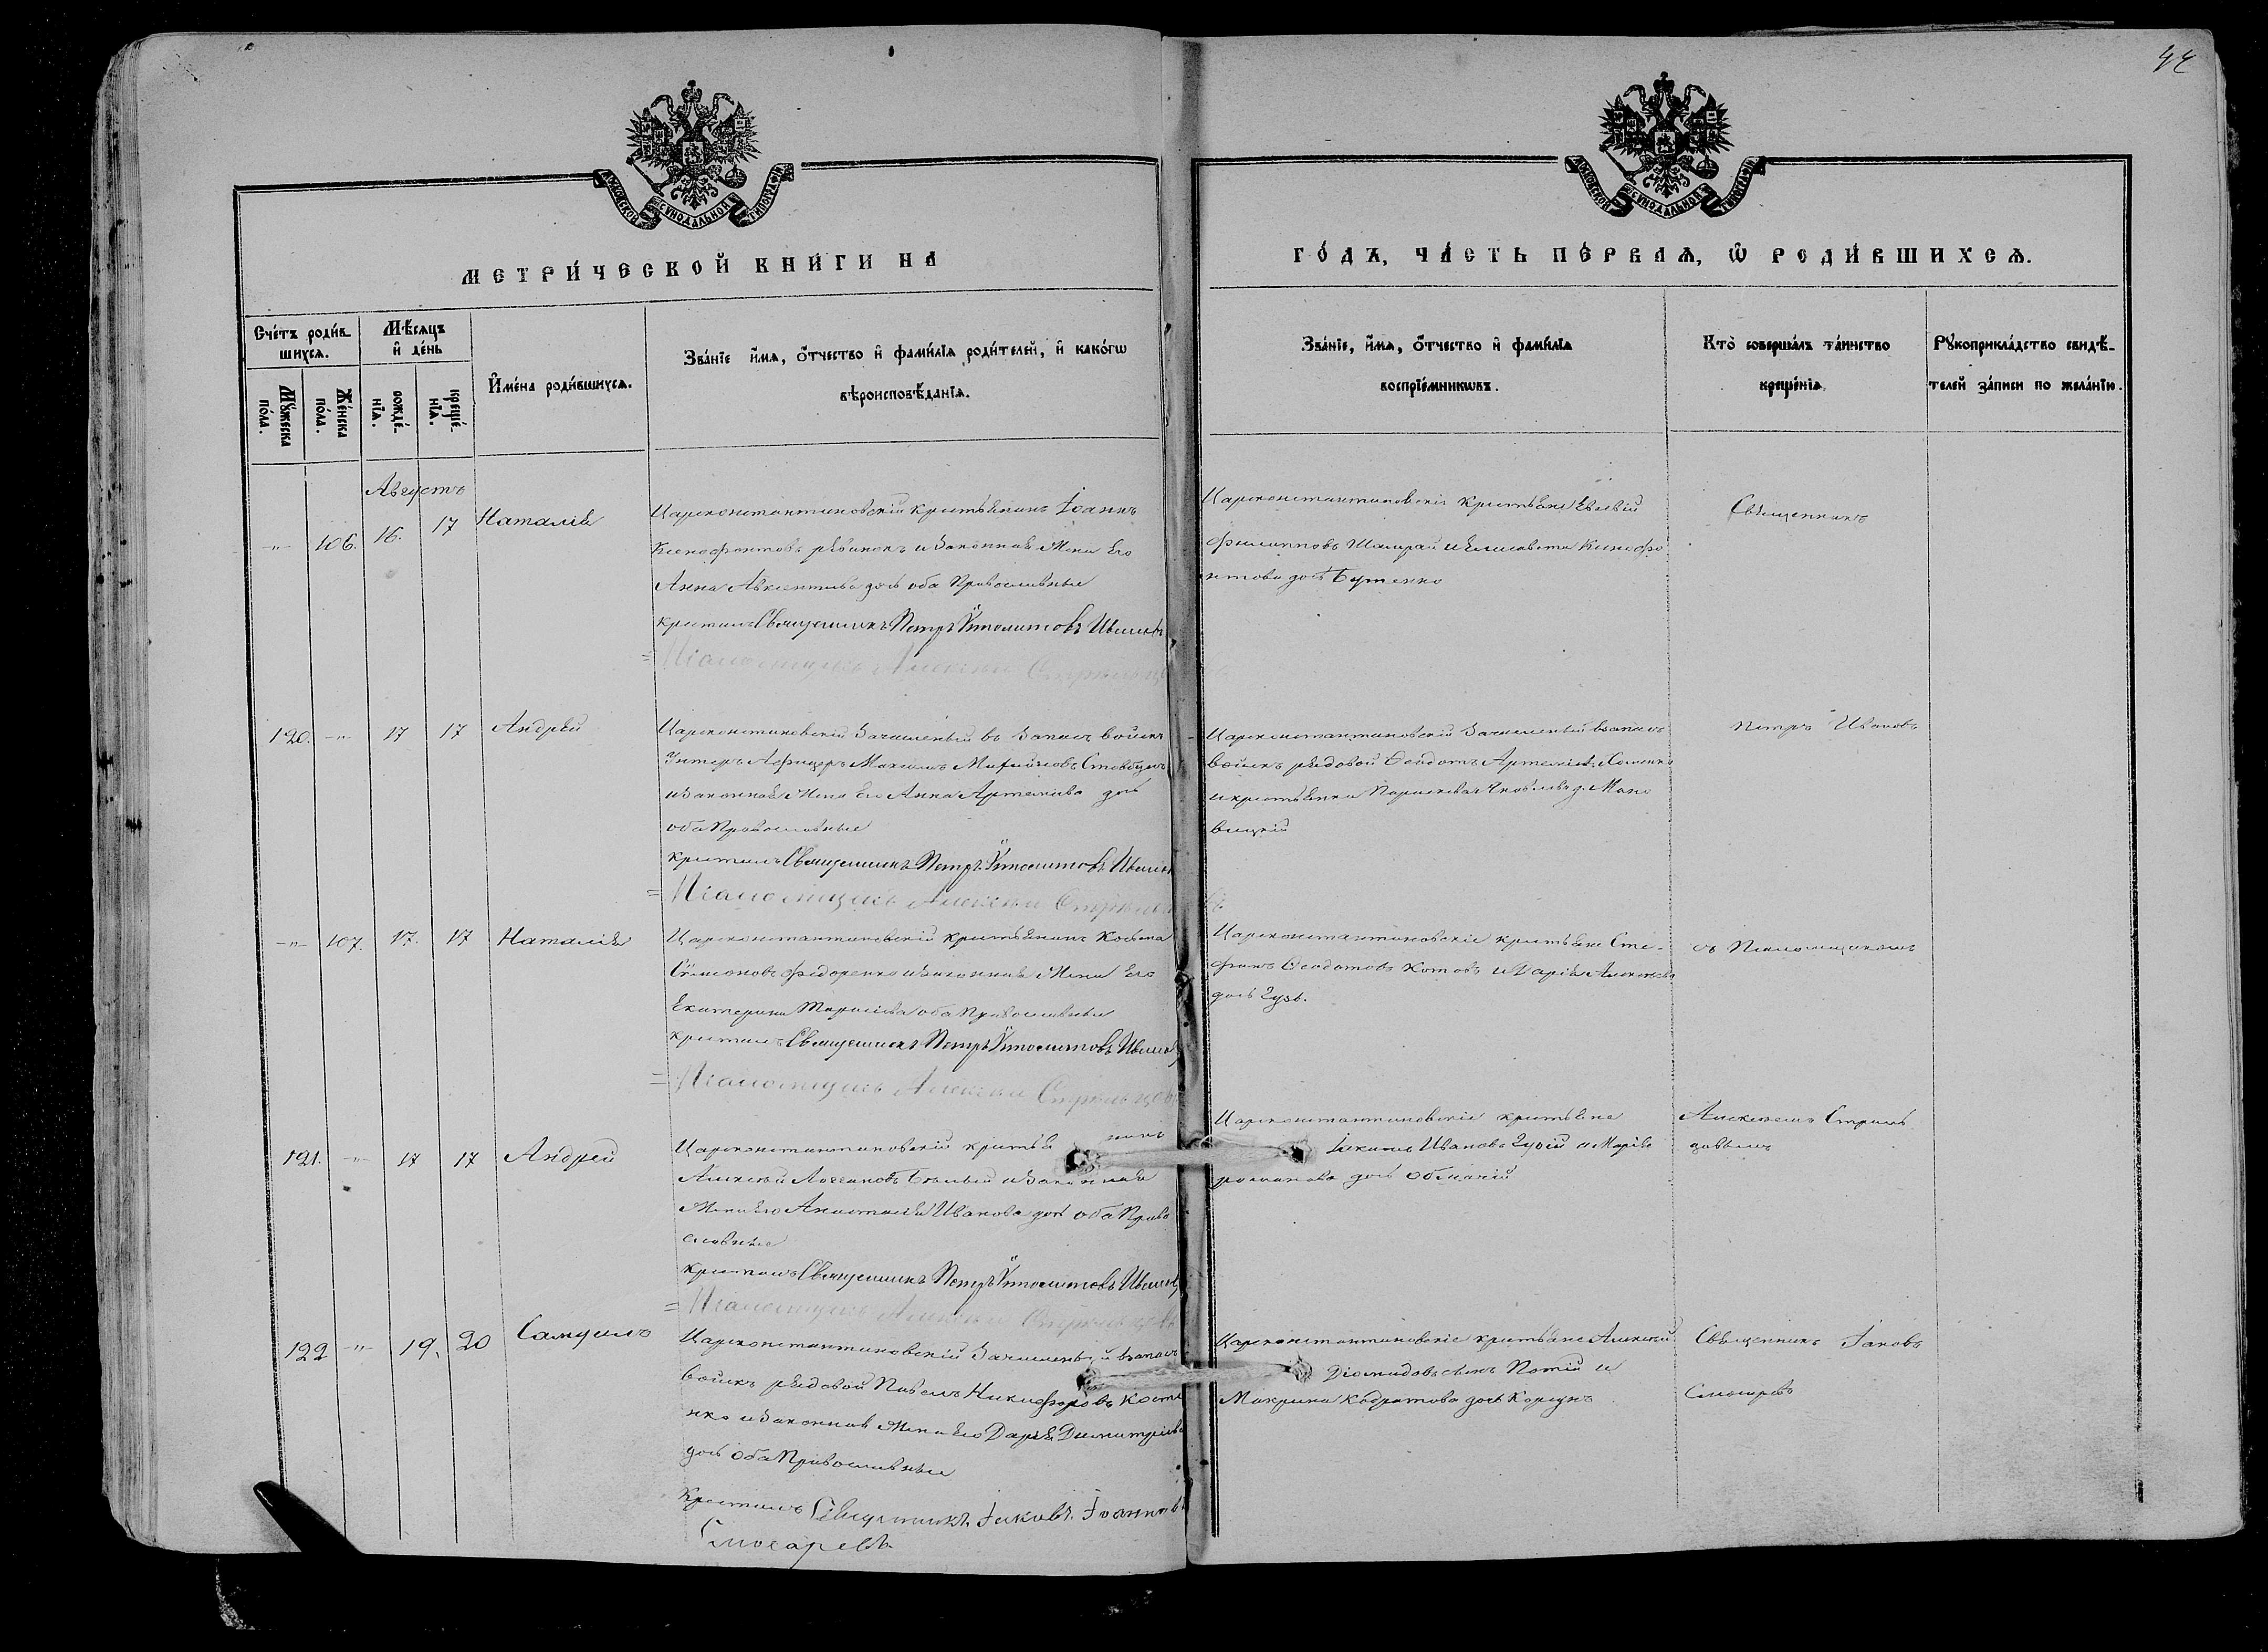 44
МОСКОВСКОЙ СѴНОДАЛЬНОЙ ТИПОГРАФІИ
МОСКОВСКОЙ СѴНОДАЛЬНОЙ ТИПОГРАФІИ
МЕТРИ́ЧЕСКОЙ КНИ́ГИ НА
ГО́ДЪ, ЧА́СТЬ ПЕ́РВАѦ, Ѡ РОДИ́ВШИХСѦ.
Сче́тъ роди́в-
шихсѧ.
Мѣ́сѧцъ
и де́нь
Мꙋ́жеска
по́ла.
Же́нска
по́ла.
рожде́-
нїѧ.
креще́-
нїѧ.
Имена̀ роди́вшихсѧ.
Зва́нїе имѧ, о́тчество и фами́лїѧ роди́телей, и како́гѡ
вѣроисповѣ́данїѧ.
Зва́нїе, имѧ, о́тчество и фами́лїѧ
воспрїе́мникѡвъ.
Кто̀ соверша́лъ та́инство
креще́нїѧ.
Рꙋкоприкла́дство свидѣ́-
телей за́писи по жела́нїю.
Августъ
-"- 106. 16. 17 Наталія
Цареконстантиновскій крестьянинъ Іоаннъ
Ксенофонтовъ Рябиноκъ и законная жена его
Анна Авксентьева дочь оба Православные
крестилъ Священникъ Петръ Ѵпполитовъ Ивановъ
= Псаломщикъ Алексѣй Стрѣльцовъ
Цареконстантиновскіе крестьяне Евсевій
Филипповъ и Елисавета Ксенофо
нтова дочь Бутенко
Священникъ
120. -"- 17 17 Андрей
Цареконстантиновскій зачисленый въ запасъ войскъ
Унтеръ Афицеръ Максимъ Михайловъ Стовбунъ
и законная жена его Анна Артемиева дочь
оба Православные
крестилъ Священникъ Петръ Ѵпполитовъ Ивановъ
= Псаломщикъ Алексѣй Стрѣльцовъ
Цареконстантиновскій зачисленый въ запасъ
войскъ рядовой Ѳеодотъ Артемиевъ Хоменко
и крестьянка Параскева Яковлева д. Мако
вецкій
Петръ Ивановъ
-"- 107. 17. 17 Наталія
Цареконстантиновскій крестьянинъ Косьма
Сѵмеоновъ Федоренко и законная жена его
Екатерина Тарасіева оба Православные
крестилъ Священникъ Петръ Ѵпполитовъ Ивановъ
= Псаломщикъ Алексѣй Стрѣльцовъ
Цареконстантиновскіе крестьяне Сте-
фанъ Ѳеодотовъ Котовъ и Дарія Алексѣева
дочь Гузь.
съ Псаломщикомъ
121. -"- 17 17 Андрей
Цареконстантиновскій крестья нинъ
Алексѣй Логгиновъ Бѣлый и законная
жена его Анастасія Иванова дочь оба Право
славные
крестилъ Священникъ Петръ Ѵпполитовъ Ивановъ
= Псаломщикъ Алексѣй Стрѣльцовъ
Цареконстантиновскіе крестьяне
Іакимъ Ивановъ и Марія
романова дочь
Алексѣемъ Стрѣль
цовымъ
122 -"- 19. 20 Самуилъ
Цареконстантиновскій зачисленый въ запасъ
войскъ рядовой Павелъ Никифоровъ Косте
нко и законная жена его Дарія Димитріева
дочь оба Православные
крестилъ Священникъ Іаковъ Іоанновъ
Слюсаревъ
Цареконстантиновскіе крестьяне Алексѣй
Діомидовъ сынъ и
Макрина Кодратова дочь Корсунъ
Священникъ Іаковъ
Слюсаревъ